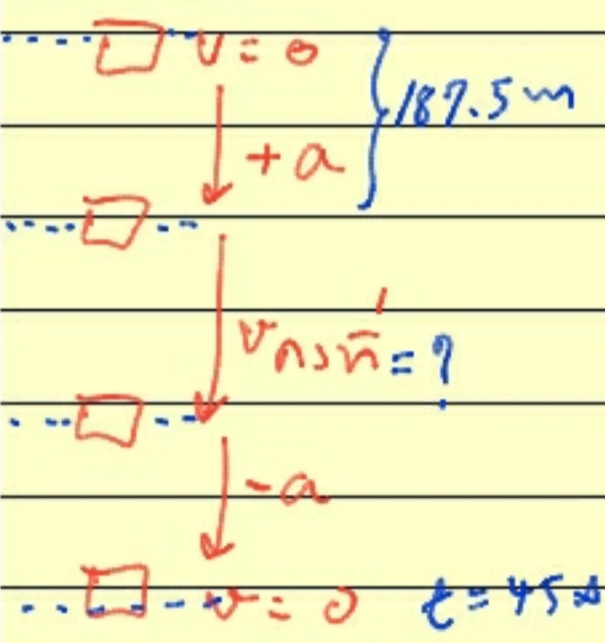 v = 0
187.5 m
+a
v คงที่ = ?
-a
v = 0 t = 45 s